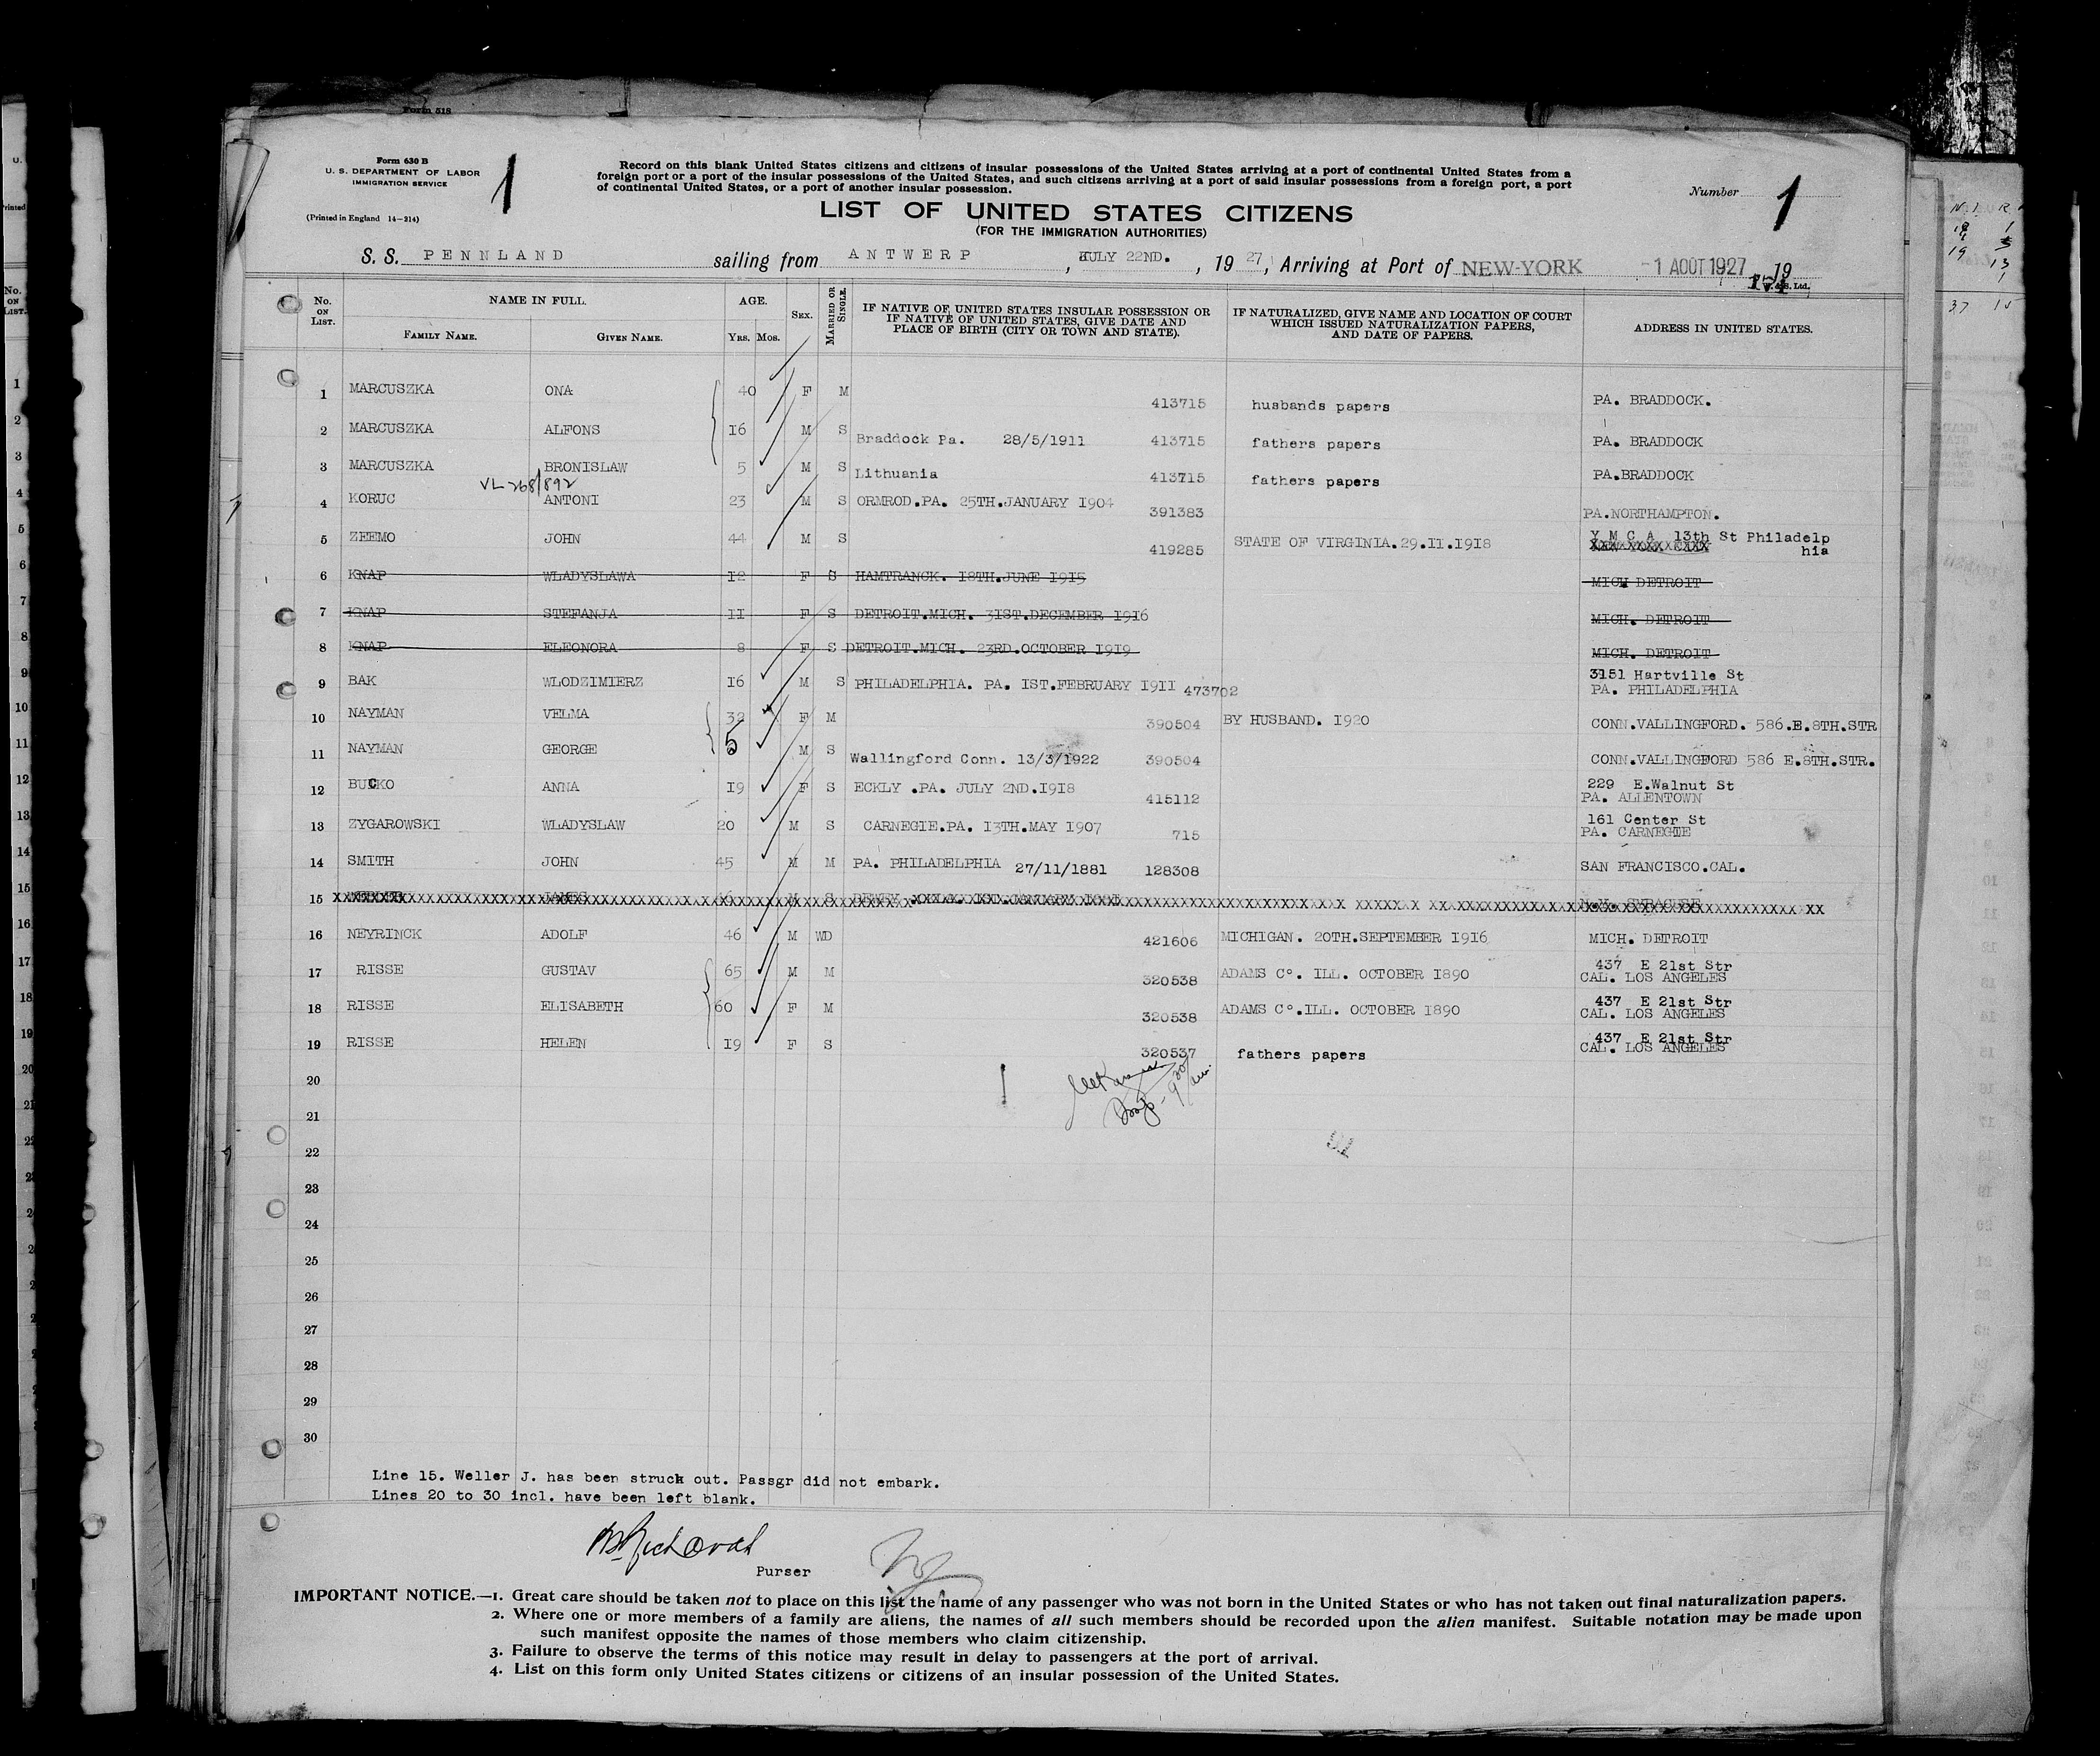 Form 518
Form 630 B
U. S. DEPARTMENT OF LABOR
IMMIGRATION SERVICE
(Printed in England 14-214)
1
Record on this blank United States citizens and citizens of insular possessions of the United States arriving at a port of continental United States from a
foreign port or a port of the insular possessions of the United States, and such citizens arriving at a port of said insular possessions from a foreign port, a port
of continental United States, or a port of another insular possession.
Number 1
LIST OF UNITED STATES CITIZENS
(FOR THE IMMIGRATION AUTHORITIES)
S. S. PENNLAND sailing from ANTWERP, JULY 22ND., 1927, Arriving at Port of NEW-YORK -1 AOUT 1927 19
No. ON LIST. NAME IN FULL. AGE. SEX. MARRIED OR SINGLE. IF NATIVE OF UNITED STATES INSULAR POSSESSION OR IF NATIVE OF UNITED STATES, GIVE DATE AND PLACE OF BIRTH (CITY OR TOWN AND STATE). IF NATURALIZED, GIVE NAME AND LOCATION OF COURT WHICH ISSUED NATURALIZATION PAPERS, AND DATE OF PAPERS. ADDRESS IN UNITED STATES.
FAMILY NAME. GIVEN NAME. YRS. MOS.
1 MARCUSZKA ONA 40 F M 413715 husbands papers PA. BRADDOCK.
2 MARCUSZKA ALFONS 16 M S Braddock Pa. 28/5/1911 413715 fathers papers PA. BRADDOCK
3 MARCUSZKA BRONISLAW 5 M S Lithuania 413715 fathers papers PA.BRADDOCK
VL-268/892
4 KORUC ANTONI 23 M S ORMROD.PA. 25TH.JANUARY 1904 391383 PA.NORTHAMPTON.
5 ZEEMO JOHN 44 M S 419285 STATE OF VIRGINIA.29.11.1918 Y M C A 13th St Philadelp
hia
6 KNAP WLADYSLAWA 12 F S HAMTRANCK. 18TH.JUNE 1915 MICH DETROIT
7 KNAP STEFANJA 11 F S DETROIT.MICH. 31ST.DECEMBER 1916 MICH. DETROIT
8 KNAP ELEONORA 8 F S DETROIT.MICH. 23RD.OCTOBER 1919 MICH. DETROIT
9 BAK WLODZIMIERZ 16 M S PHILADELPHIA. PA. IST.FEBRUARY 1911 473702 3151 Hartville St
PA. PHILADELPHIA
10 NAYMAN VELMA 32 F M 390504 BY HUSBAND. 1920 CONN.VALLINGFORD. 586.E.8TH.STR
11 NAYMAN GEORGE 5 M S Wallingford Conn. 13/3/1922 390504 CONN.VALLINGFORD 586 E.8TH.STR.
12 BUCKO ANNA 19 F S ECKLY .PA. JULY 2ND.1918 415112 229 E.Walnut St
PA. ALLENTOWN
13 ZYGAROWSKI WLADYSLAW 20 M S CARNEGIE.PA. 13TH.MAY 1907 715 161 Center St
PA. CARNEGIE
14 SMITH JOHN 45 M M PA. PHILADELPHIA 27/11/1881 128308 SAN FRANCISCO.CAL.
15 JAMES 46 M S N.Y. SYRACUSE
16 NEYRINCK ADOLF 46 M WD 421606 MICHIGAN. 20TH.SEPTEMBER 1916 MICH. DETROIT
17 RISSE GUSTAV 65 M M 320538 ADAMS Co. ILL. OCTOBER 1890 437 E 21st Str
CAL. LOS ANGELES
18 RISSE ELISABETH 60 F M 320538 ADAMS Co.ILL. OCTOBER 1890 437 E 21st Str
CAL. LOS ANGELES
19 RISSE HELEN 19 F S 320537 fathers papers 437 E 21st Str
CAL. LOS ANGELES
20
21
22
23
24
25
26
27
28
29
30
Line 15. Weller J. has been struck out. Passgr did not embark.
Lines 20 to 30 incl. have been left blank.
Purser
IMPORTANT NOTICE.—1. Great care should be taken not to place on this list the name of any passenger who was not born in the United States or who has not taken out final naturalization papers.
2. Where one or more members of a family are aliens, the names of all such members should be recorded upon the alien manifest. Suitable notation may be made upon
such manifest opposite the names of those members who claim citizenship.
3. Failure to observe the terms of this notice may result in delay to passengers at the port of arrival.
4. List on this form only United States citizens or citizens of an insular possession of the United States.